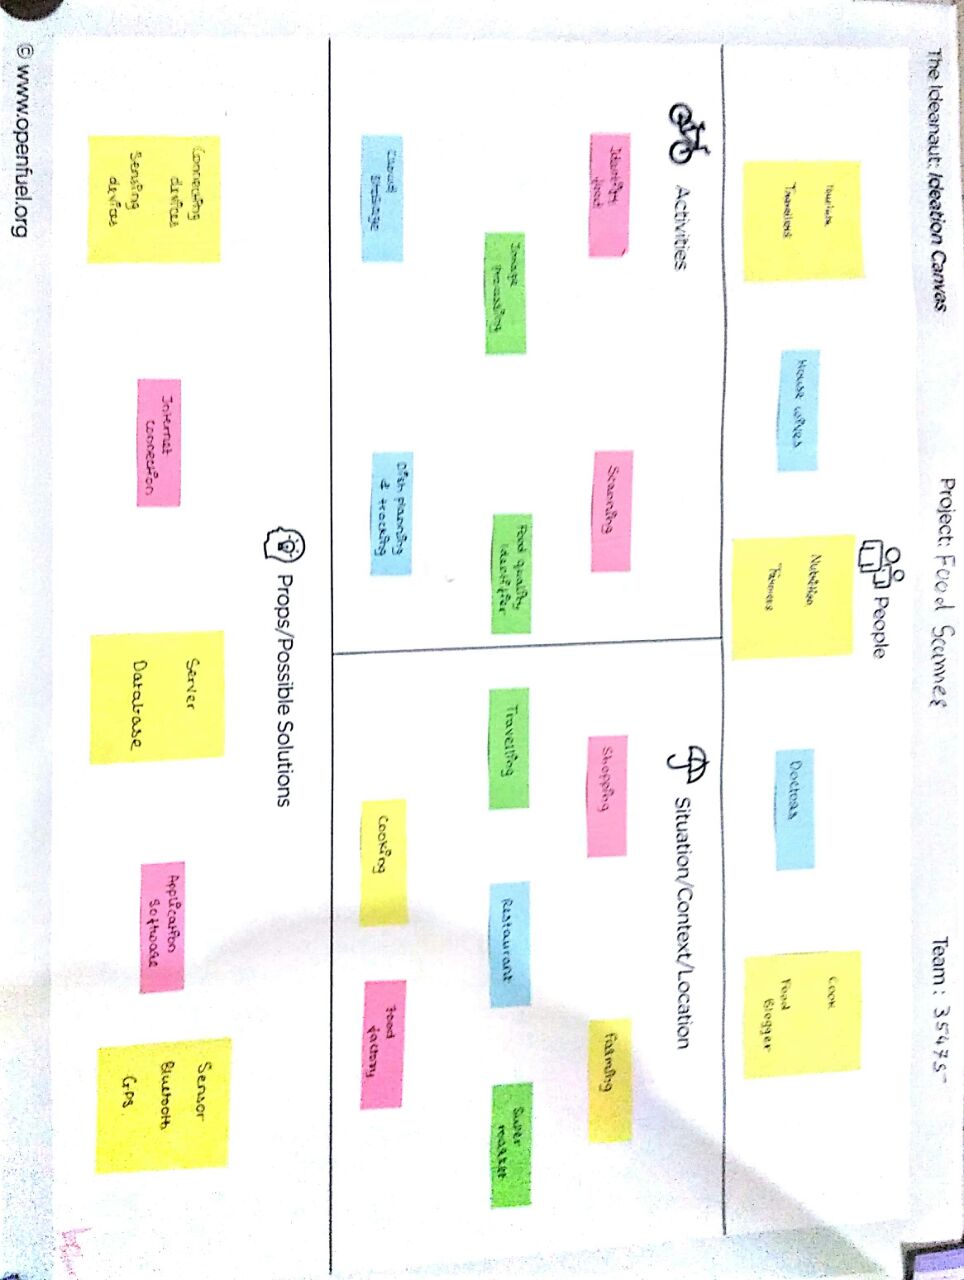 The Ideanaut: Ideation Canvas
Project: Food Scanner
Team: 35475
People
Tourists
Travellers
House wives
Nutrition
Farmers
Doctors
Cook
Food
Blogger
Activities
Identify
food
Scanning
Image
processing
Food quality
Identifier
Cloud
Storage
Dish planning
& tracking
Situation/Context/Location
Shopping
Farming
Travelling
Restaurant
Super
market
Cooking
Food
factory
Props/Possible Solutions
Connecting
devices
Sensing
devices
Internet
connection
Server
Database
Application
Software
Sensor
Bluetooth
GPS
© www.openfuel.org